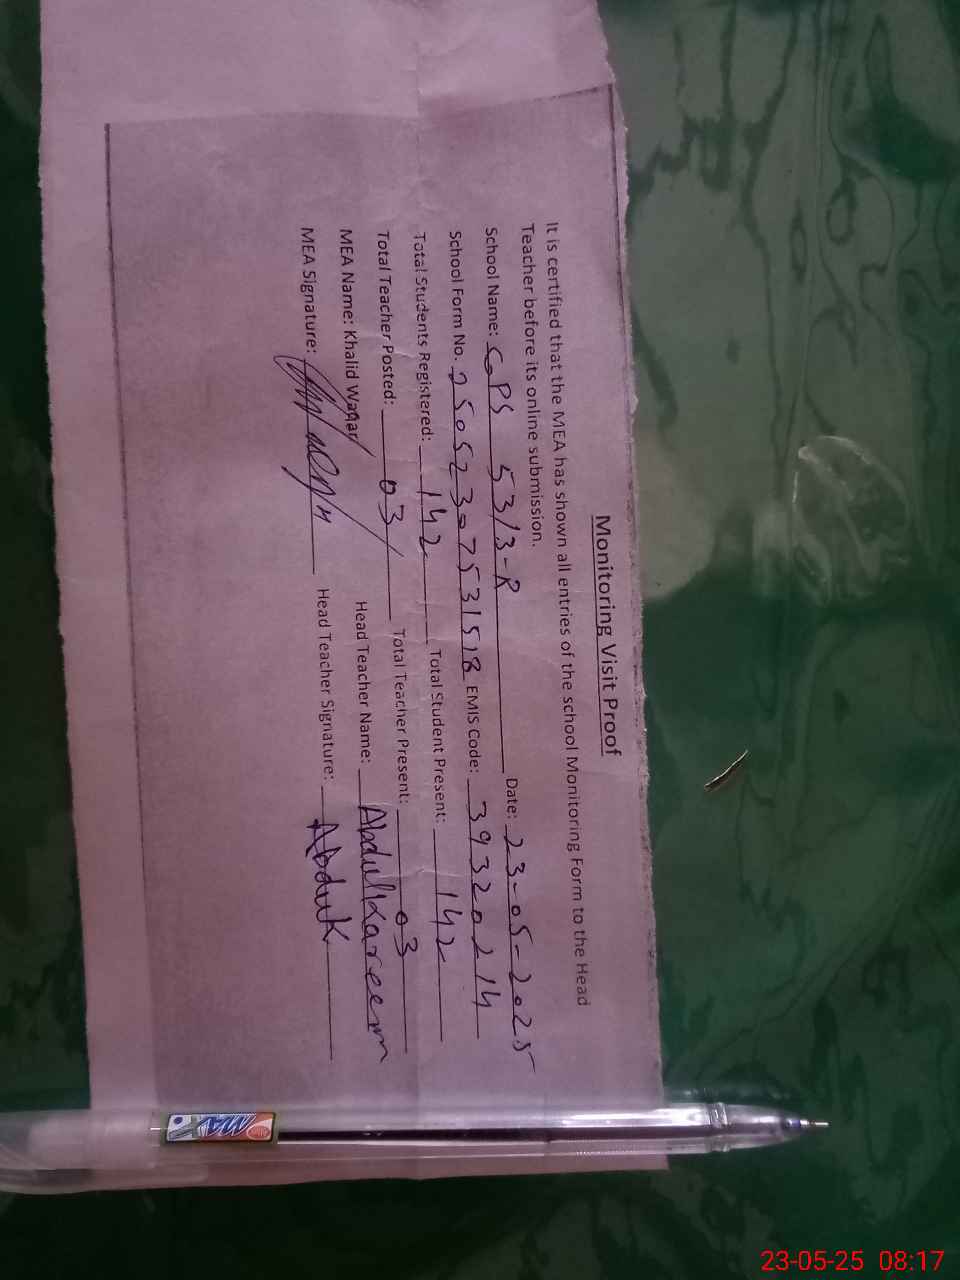 Monitoring Visit Proof
It is certified that the MEA has shown all entries of the school Monitoring Form to the Head
Teacher before its online submission.
School Name: GPS 53/3-R Date: 23-05-2025
School Form No. 25052307531518 EMIS Code: 39320214
Total Students Registered: 142 Total Student Present: 142
Total Teacher Posted: 03 Total Teacher Present: 03
MEA Name: Khalid Waqar Head Teacher Name: Abdul Kareem
MEA Signature: Head Teacher Signature: AbdulK
MAX
23-05-25 08:17